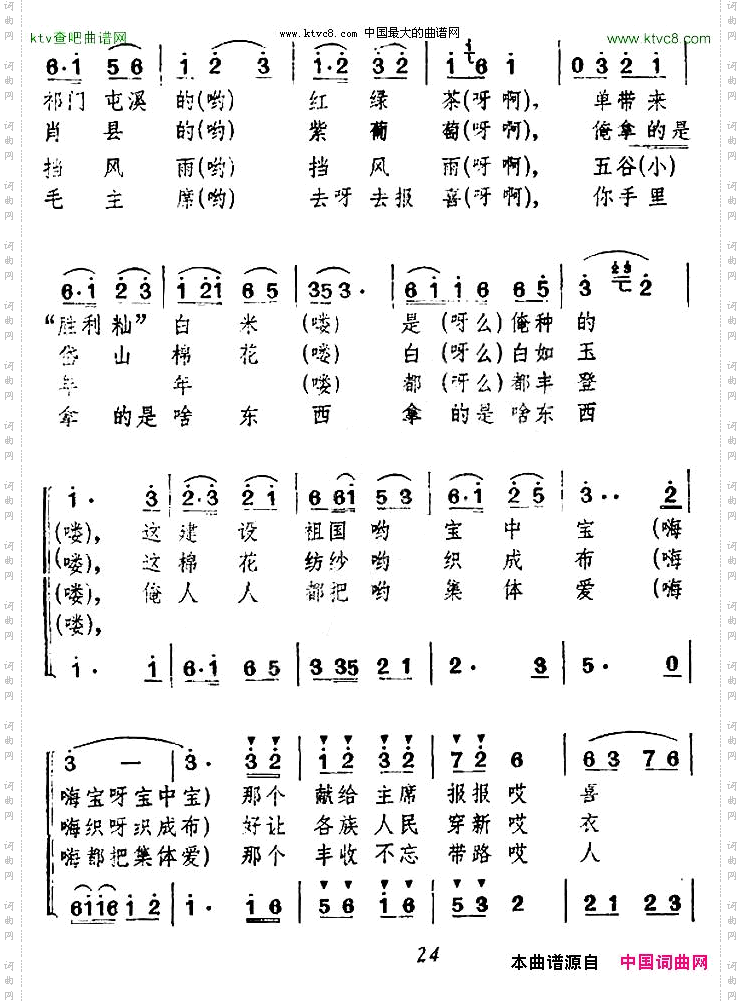 ktv查吧曲谱网
www.ktvc8.com 中国最大的曲谱网
www.ktvc8.com
6·1 56 1· 2 3 1·2 32 1 6 1· 0321
祁门 屯溪 的(哟) 红 绿 茶(呀啊), 单带来
肖 县 的(哟) 紫 葡 萄(呀啊), 俺拿的是
挡 风 雨(哟) 挡 风 雨(呀啊), 五谷(小)
毛 主 席(哟) 去呀去报 喜(呀啊), 你手里
6·1 23 121 65 353· 6 1 1 6 65 3 2
“胜利籼” 白 米 (喽) 是(呀么)俺种的
岱 山 棉 花 (喽) 白(呀么)白如玉
年 年 (喽) 都(呀么)都丰登
拿 的是啥 东 西 拿 的是啥东西
1· 3 2·3 21 661 53 6·1 25 3·· 2
(喽), 这建 设 祖国哟 宝 中 宝 (嗨
(喽), 这棉 花 纺纱哟 织 成 布 (嗨
(喽), 俺人 人 都把哟 集 体 爱 (嗨
(喽),
1· 1 6·1 65 335 21 2· 3 5· 0
3 — 3· 32 12 32 72 6 63 76
嗨宝呀宝中宝) 那个 献给 主席 报报 哎 喜
嗨织呀织成布) 好让 各族 人民 穿新 哎 衣
嗨都把集体爱) 那个 丰收 不忘 带路 哎 人
6116 12 1· 61 56 16 53 2 21 23
24
本曲谱源自 中国词曲网